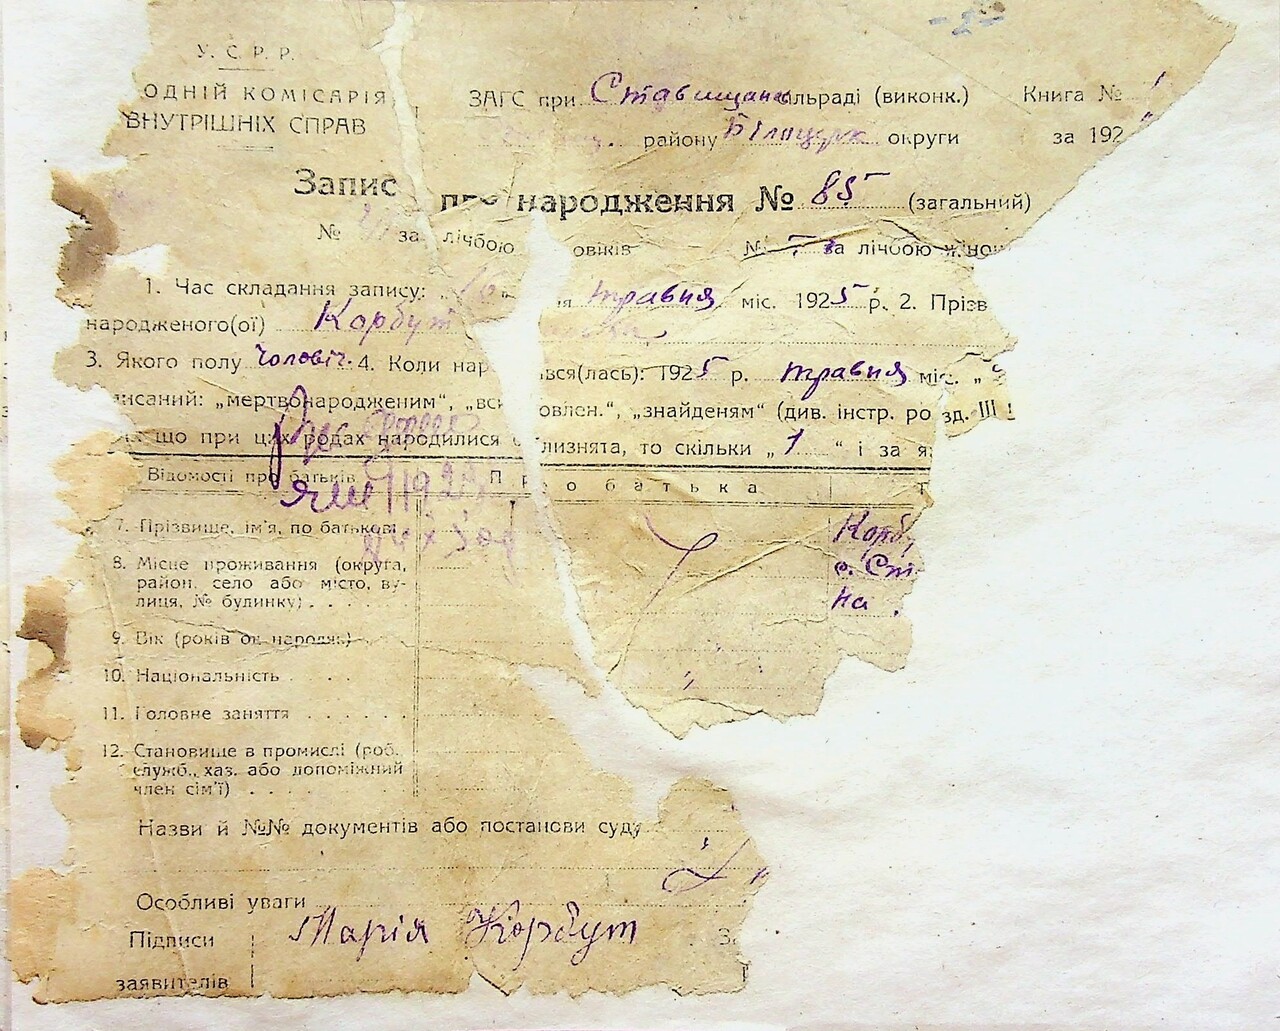 У. С. Р. Р.
ОДНІЙ КОМІСАРІЯ
ВНУТРІШНІХ СПРАВ
ЗАГС при Ставищанс льраді (виконк.) Книга №
району Білоцерк округи за 192
Запис про народження № 85 (загальний)
№ за лічбою овіків № 7 за лічбою жіноч
1. Час складання запису: „ 16 „ ня травня міс. 1925 р. 2. Прізв
народженого(ої) Корбут
3. Якого полу чоловіч. 4. Коли нар вся(лась): 1925 р. травня міс. „
писаний: „мертвонародженим“, „вси овлен.“, „знайденям“ (див. інстр. розд. III
що при цих родах народилися близнята, то скільки „ 1 “ і за я
Відомості про батьків Про батька
7. Прізвище, ім'я, по батькові Корб
8. Місце проживання (округа, с. Ст
район, село або місто, ву- на
лиця, № будинку) . . . .
9. Вік (років од народж.)
10. Національність . . . .
11. Головне заняття . . . . . .
12. Становище в промислі (роб.
служб., хаз. або допоміжний
член сім'ї) . . . .
Назви й №№ документів або постанови суду
Особливі уваги
Підписи Марія Корбут
заявителів